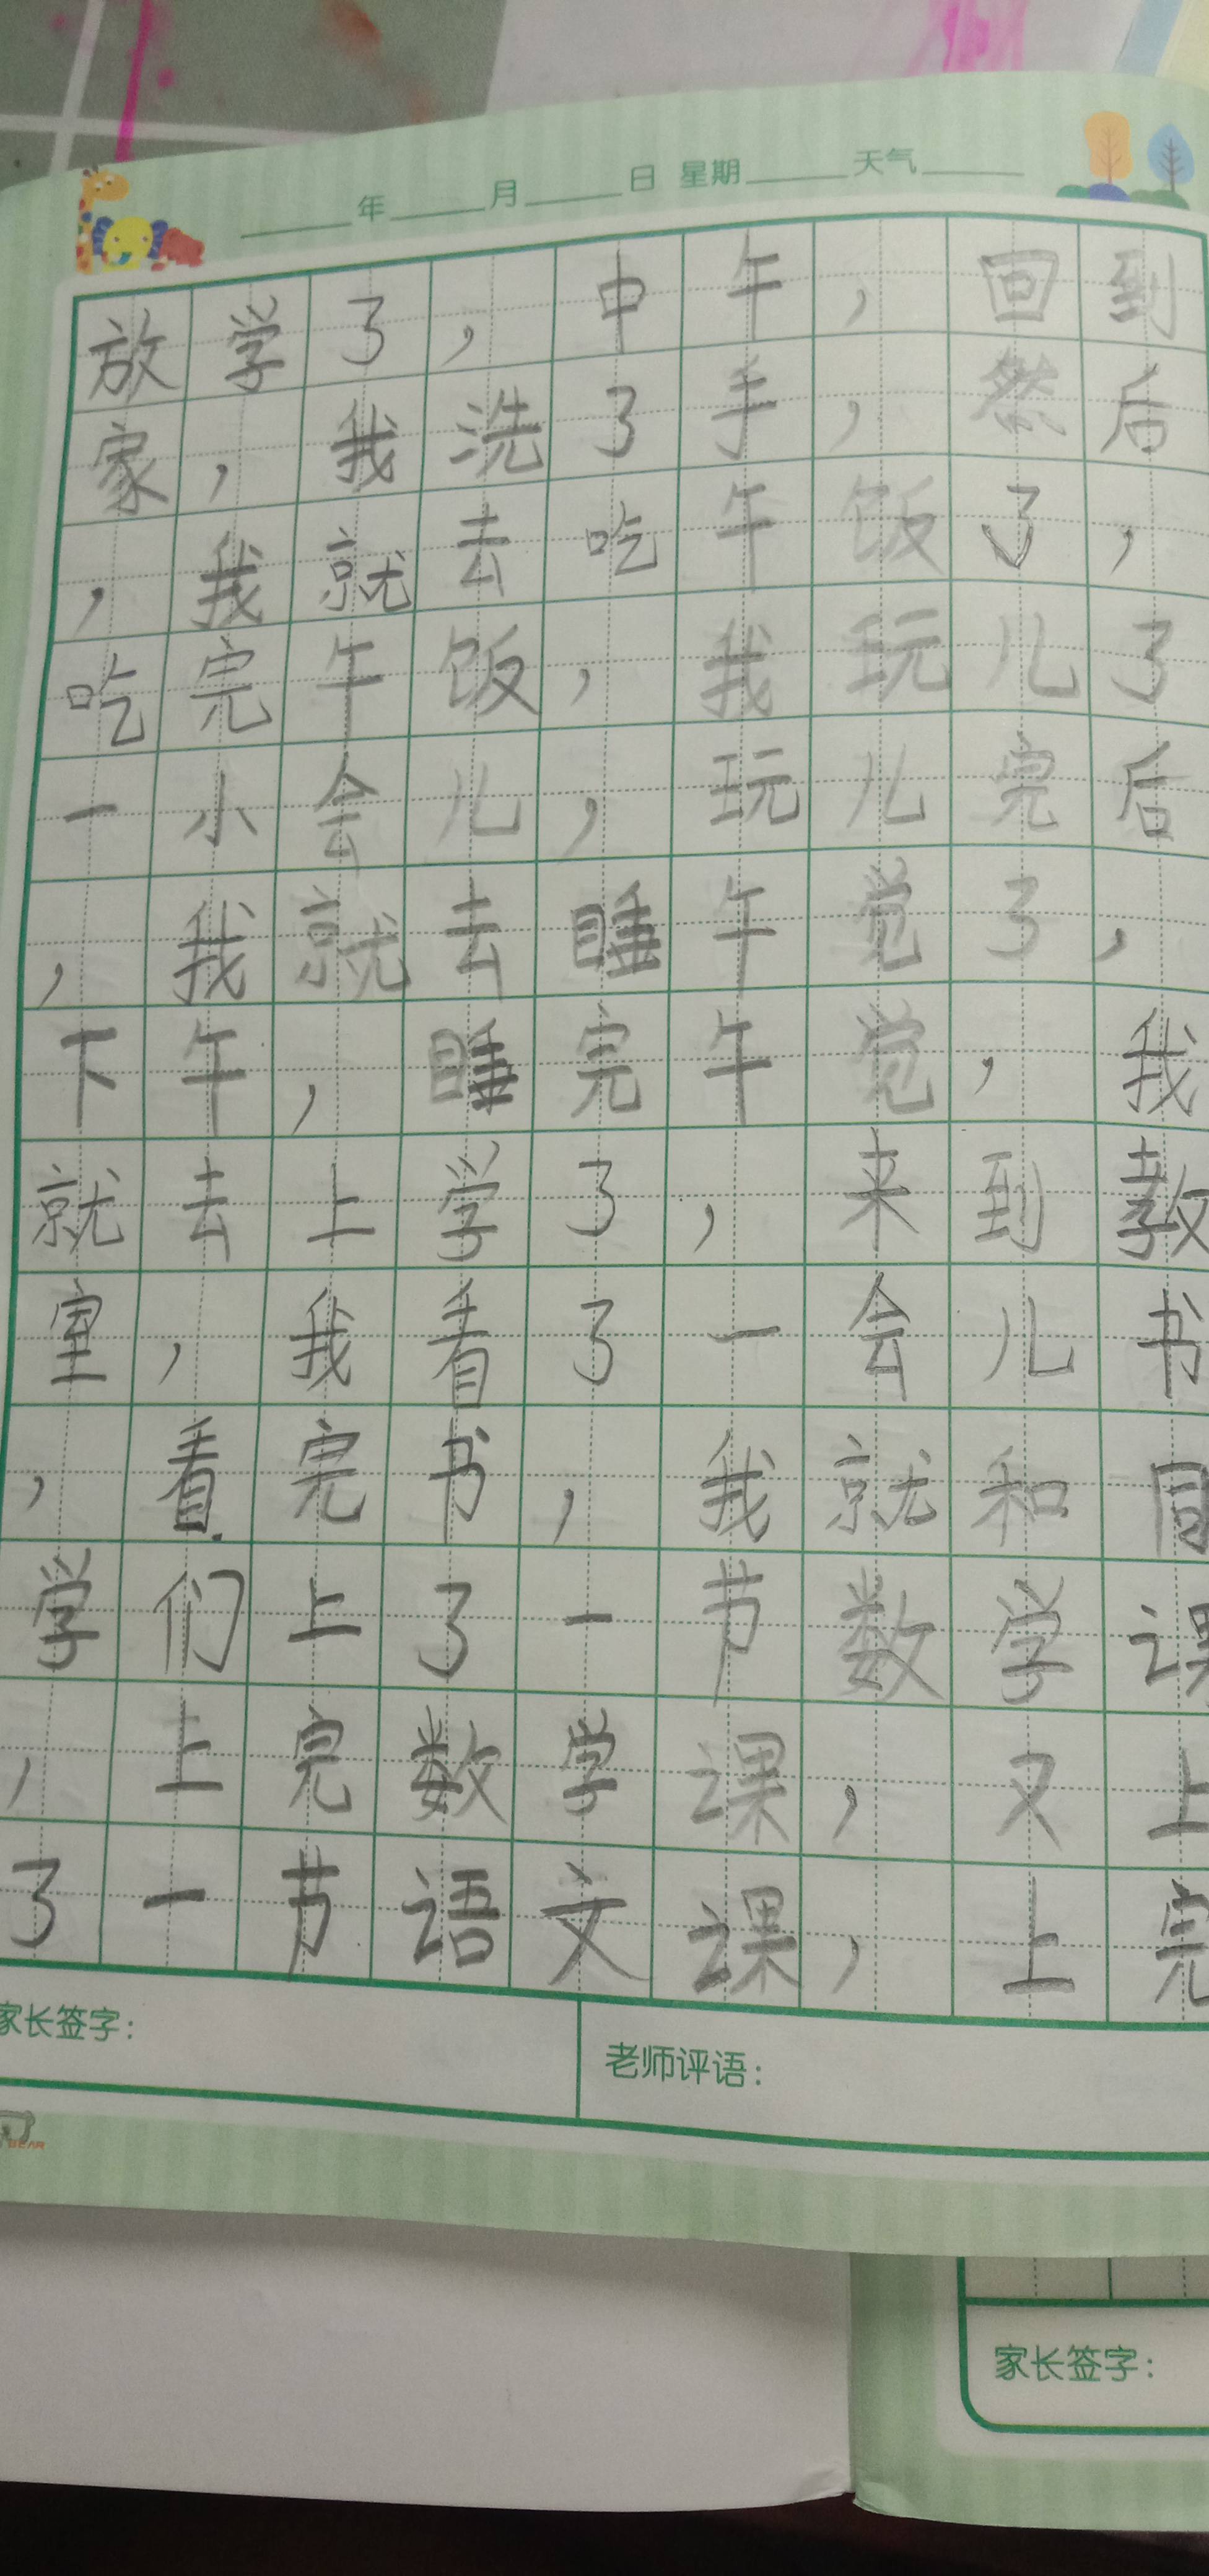 年 月 日 星期 天气
放学了，中午，回到
家，我洗了手，然后
，我就去吃午饭了，
吃完午饭，我玩儿了
一小会儿，玩儿完后
，我就去睡午觉了，
下午，睡完午觉，我
就去上学了，来到教
室，我看了一会儿书
，看完书，我就和同
学们上了一节数学课
，上完数学课，又上
了一节语文课，上完
家长签字：
老师评语：
BEAR
家长签字：